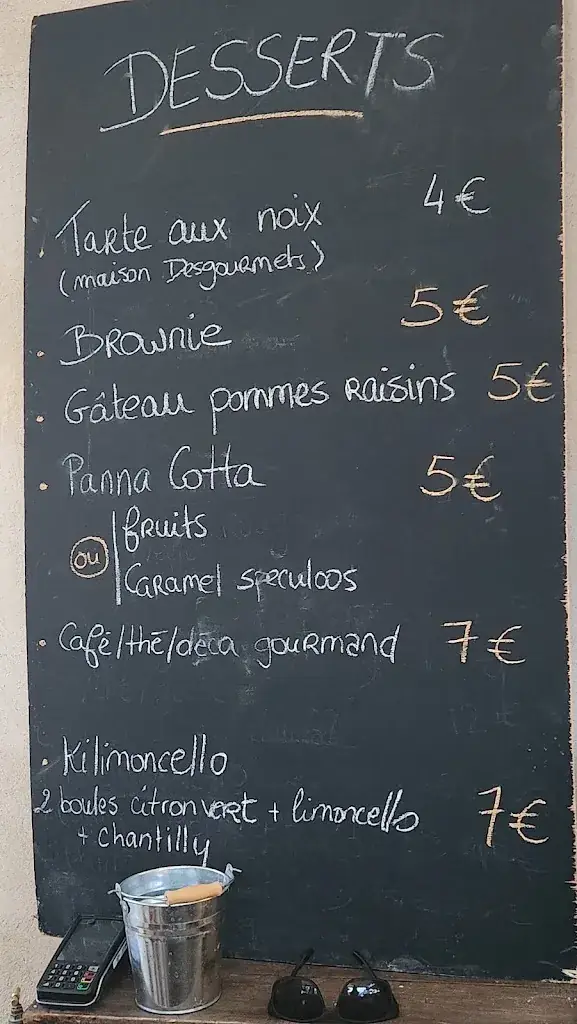 DESSERTS
. Tarte aux noix 4€
(maison Desgourmets)
. Brownie 5€
. Gâteau pommes raisins 5€
. Panna Cotta 5€
ou
fruits
Caramel speculoos
. Café/thé/déca gourmand 7€
. Kilimoncello
2 boules citron vert + limoncello 7€
+ chantilly